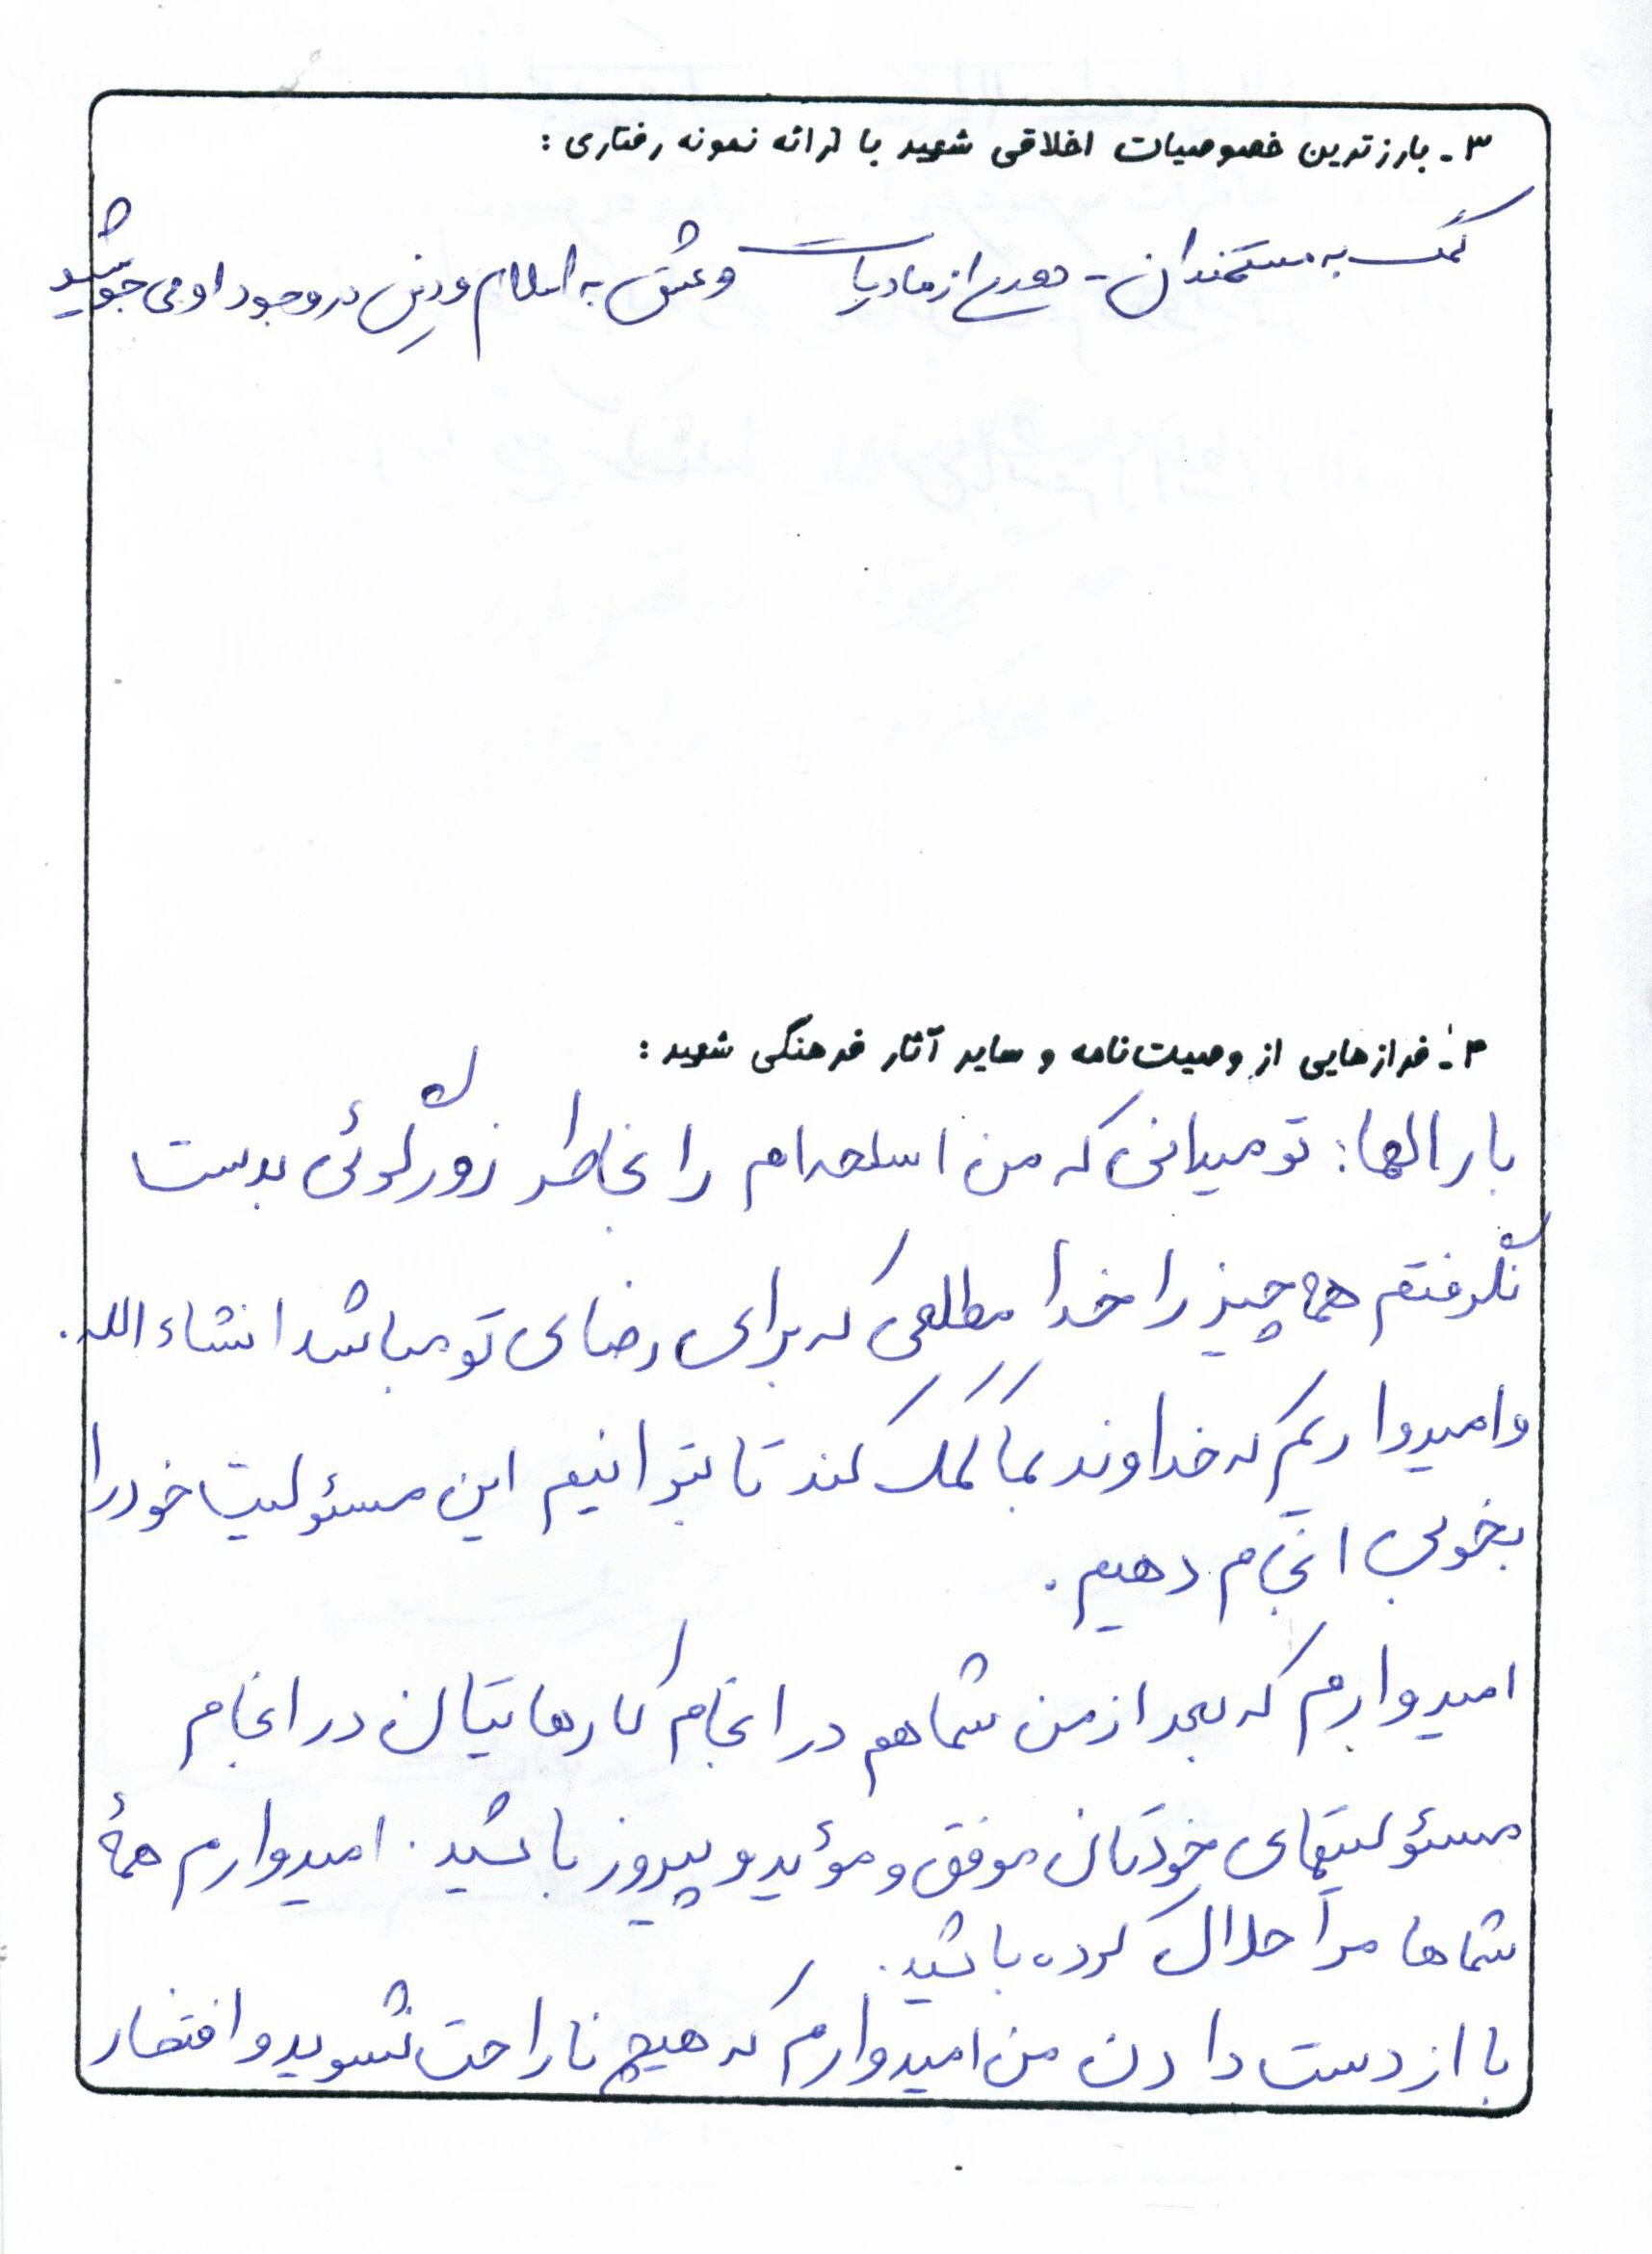 ۳ـ بارزترین خصوصیات اخلاقی شهید با ارائه نمونه رفتاری :
کمک به مستمندان - دوری از مادیات و عشق به اسلام و دین در وجود او می جوشید
۴ـ فرازهایی از وصیت‌نامه و سایر آثار فرهنگی شهید :
بارالها: تو میدانی که من اسلحه‌ام را بخاطر زورگوئی بدست
نگرفتم همهٔ چیز را خدا که برای رضای تو میباشد انشاءالله.
وامیدواریم که خداوند بما کمک کند تا بتوانیم این مسئولیت خود را
بخوبی انجام دهیم.
امیدوارم که بعد از من شما هم در انجام کارهایتان در انجام
مسئولیتهای خودتان موفق و مؤید و پیروز باشید. امیدوارم همهٔ
شماها مرا حلال کرده باشید.
با از دست دادن من امیدوارم که هیچ ناراحت نشوید و افتخار